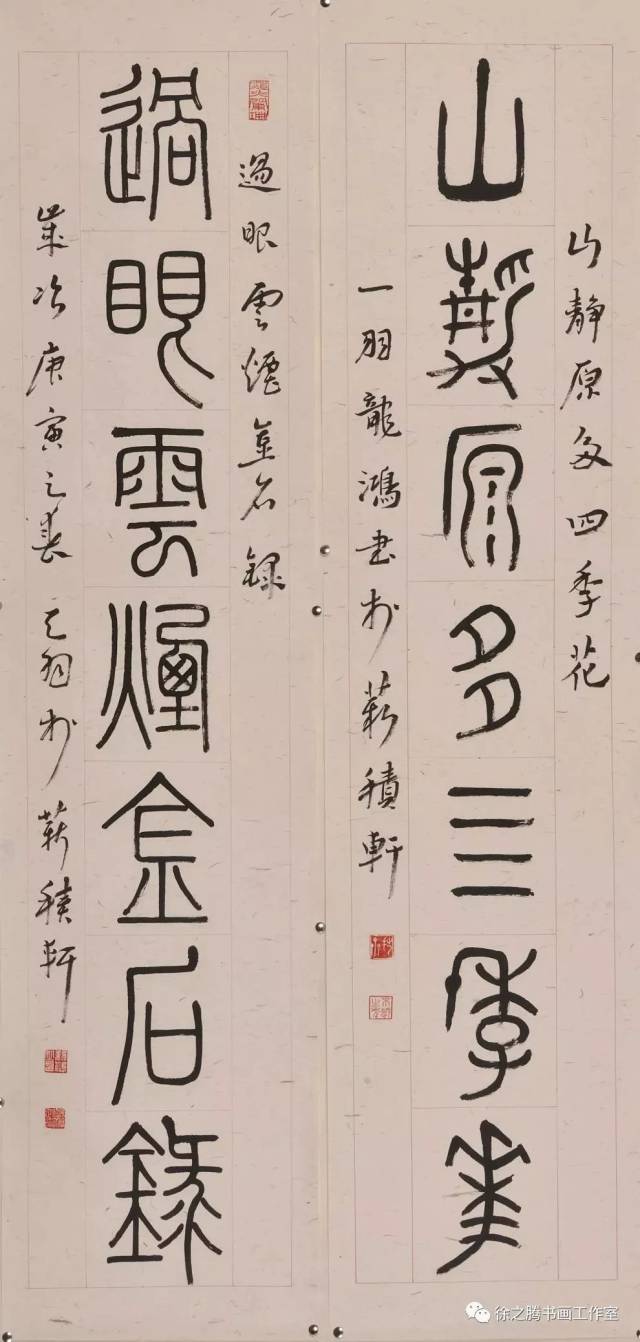 山静原多四季花
山靜原多四季花
一羽龍鴻書於薪積軒
過眼雲煙金石錄
過眼雲煙金石錄
歲次庚寅之春一羽於薪積軒
徐之腾书画工作室